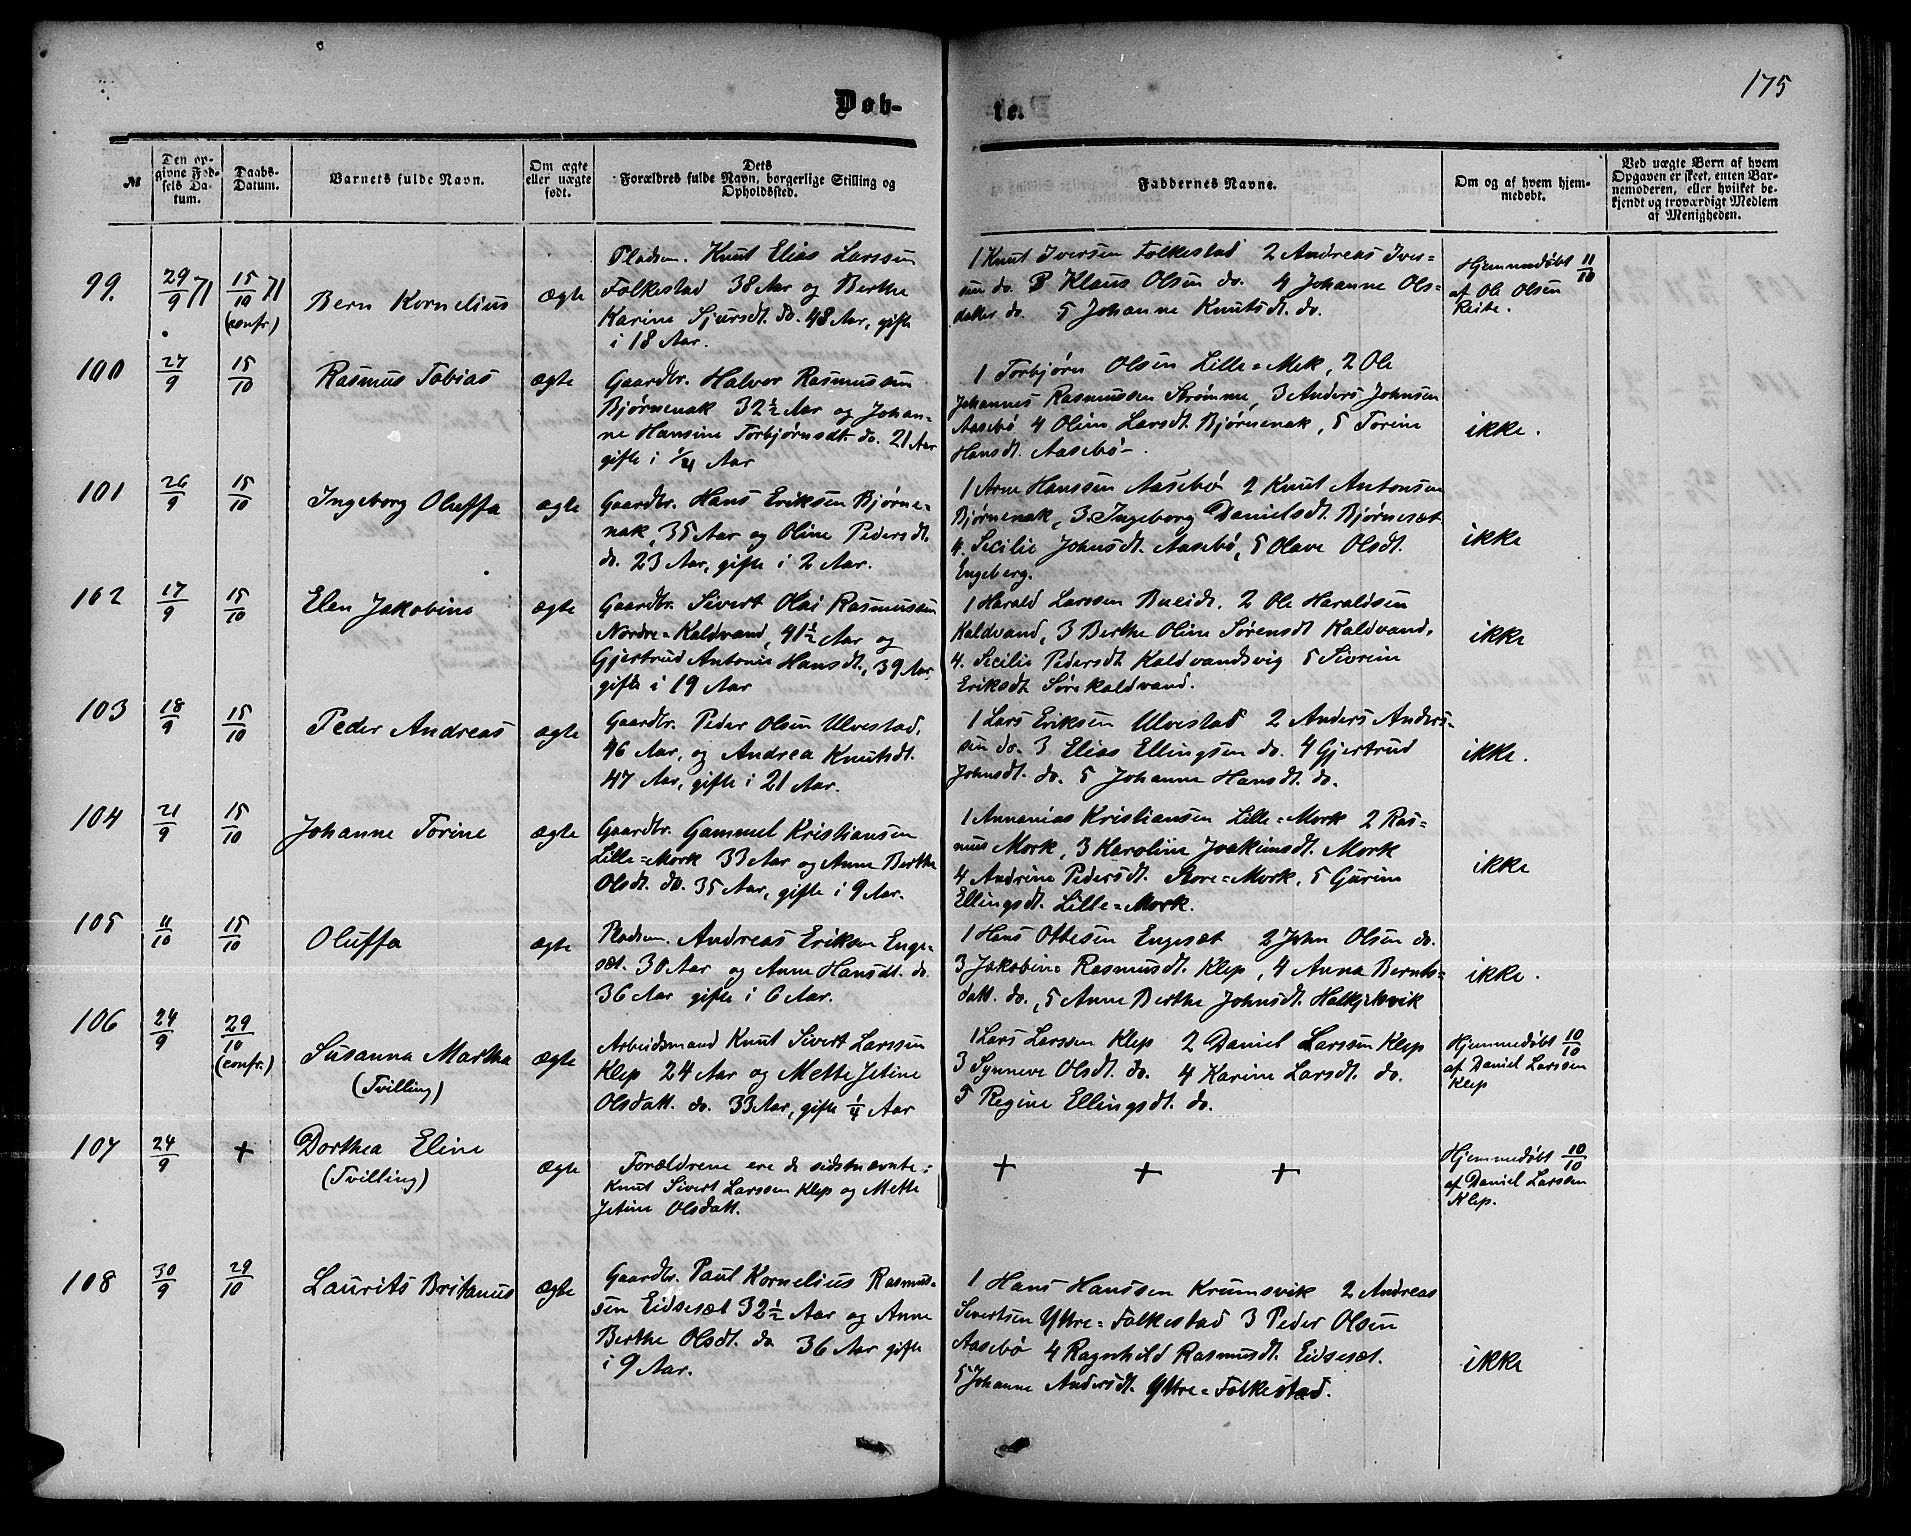 175
Døb-
te.
№
Den op-
givne Fød-
sels Da-
tum.
Daabs-
Datum.
Barnets fulde Navn.
Om ægte
eller uægte
født.
Dets
Forældres fulde Navn, borgerlige Stilling og
Opholdssted.
Faddernes Navne.
Om og af hvem hjem-
medøbt.
Ved uægte Børn af hvem
Opgaven er skeet, enten Bar-
nemoderen, eller hvilket be-
kjendt og troværdigt Medlem
af Menigheden.
99. 29/9 71 15/10 71 (confr.) Bern Kornelius ægte
Pladsm. Knut Elias Larssen
Folkestad 38 Aar og Berthe
Karine Sjursdt. do. 48 Aar, gifte
i 18 Aar.
1 Knut Iversen Folkestad 2 Andreas Iver=
sen do. 3 Klaus Olsen do. 4 Johanne Ols=
datter do. 5 Johanne Knutsdt. do.
Hjemmedøbt 11/10
af Ole Olsen
Reite.
100 27/9 15/10 Rasmus Tobias ægte
Gaardbr. Halvor Rasmussen
Bjørnenak 32½ Aar og Johan=
ne Hansine Torbjørnsdt. do. 21 Aar
gifte i 1/21 Aar
1 Torbjørn Olsen Lille=Mek, 2 Ole
Johannes Rasmussen Strømme, 3 Anders Johnsen
Aasebø 4 Oline Larsdt. Bjørnenak, 5 Torine
Hansdt. Aasebø.
ikke.
101 26/9 15/10 Ingeborg Oluffa ægte
Gaardbr. Hans Eriksen Bjørne=
nak, 35 Aar og Oline Pedersdt.
do. 23 Aar, gifte i 2 Aar.
1 Arne Hanssen Aasebø 2 Knut Antonsen
Bjørnenak, 3. Ingeborg Danielsdt. Bjørneset
4. Secilie Johnsdt. Aasebø, 5 Olave Olsdt.
Engeberg.
ikke
102 17/9 15/10 Elen Jakobine ægte
Gaardbr. Sivert Olai Rasmussen
Nordre=Kaldvand, 41½ Aar og
Gjertrud Antonie Hansdt., 39 Aar
gifte i 19 Aar
1 Harald Larssen Bueide, 2 Ole Haraldsen
Kaldvand, 3 Berthe Oline Sørensdt Kaldvand,
4. Secilie Pedersdt Kaldvandsvig 5 Sivrine
Eriksdt Sørekaldvand.
ikke
103 18/9 15/10 Peder Andreas ægte
Gaardbr. Peder Olsen Ulvestad,
46 Aar, og Andrea Knutsdt.
47 Aar, gifte i 21 Aar.
1 Lars Eriksen Ulvestad 2 Anders Anders=
sen do. 3 Elias Ellingsen do. 4 Gjertrud
Johnsdt. do. 5 Johanne Hansdt. do.
ikke.
104 21/9 15/10 Johanne Torine ægte
Gaardbr. Gammel Kristiansen
Lille=Mork 33 Aar og Anne Berthe
Olsdt. do. 35 Aar, gifte i 9 Aar.
1 Annanias Kristiansen Lille=Mork 2 Ras=
mus Mork, 3 Karoline Joakimsdt. Mork
4 Andrine Pedersdt. Store=Mork, 5 Gurine
Ellingsdt. Lille=Mork.
ikke
105 11/10 15/10 Oluffa ægte
Pladsm. Andreas Eriksen Enge=
sæt. 30 Aar og Anne Hansdt. do.
36 Aar gifte i 6 Aar.
1 Hans Ottesen Engesæt 2 John Olsen do.
3 Jakobine Rasmusdt. Klep, 4 Anna Bernts=
datt. do., 5 Anne Berthe Johnsdt. Halkjelsvik
ikke.
106 24/9 29/10 (confr.) Susanna Martha ægte
(Tvilling)
Arbeidsmand Knut Sivert Larssen
Klep 24 Aar og Mette Jetine
Olsdatt. do. 33 Aar, gifte ¼ Aar
1 Lars Larssen Klep 2 Daniel Larssen Klep
3 Synneve Olsdt. do. 4 Karine Larsdt. do.
5 Regine Ellingsdt. do.
Hjemmedøbt 10/10
af Daniel Larssen
Klep
107 24/9 + Dorthea Eline ægte
(Tvilling)
Forældrene ere de sidstnævnte:
Knut Sivert Larssen Klep og Mette
Jetine Olsdatt.
+ + +
Hjemmedøbt 10/10
af Daniel Larssen
Klep.
108 30/9 29/10 Laurits Britanus ægte
Gaardbr. Paul Kornelius Rasmus=
sen Eidsesæt 32½ Aar og Anne
Berthe Olsdt. do 36 Aar gifte
i 9 Aar.
1 Hans Hanssen Krumsvik 2 Andreas
Sivertsen Yttre=Folkestad 3 Peder Olsen
Aasebø 4 Ragnhild Rasmusdt. Eidsesæt.
5 Johanne Andersdt. Yttre=Folkestad.
ikke